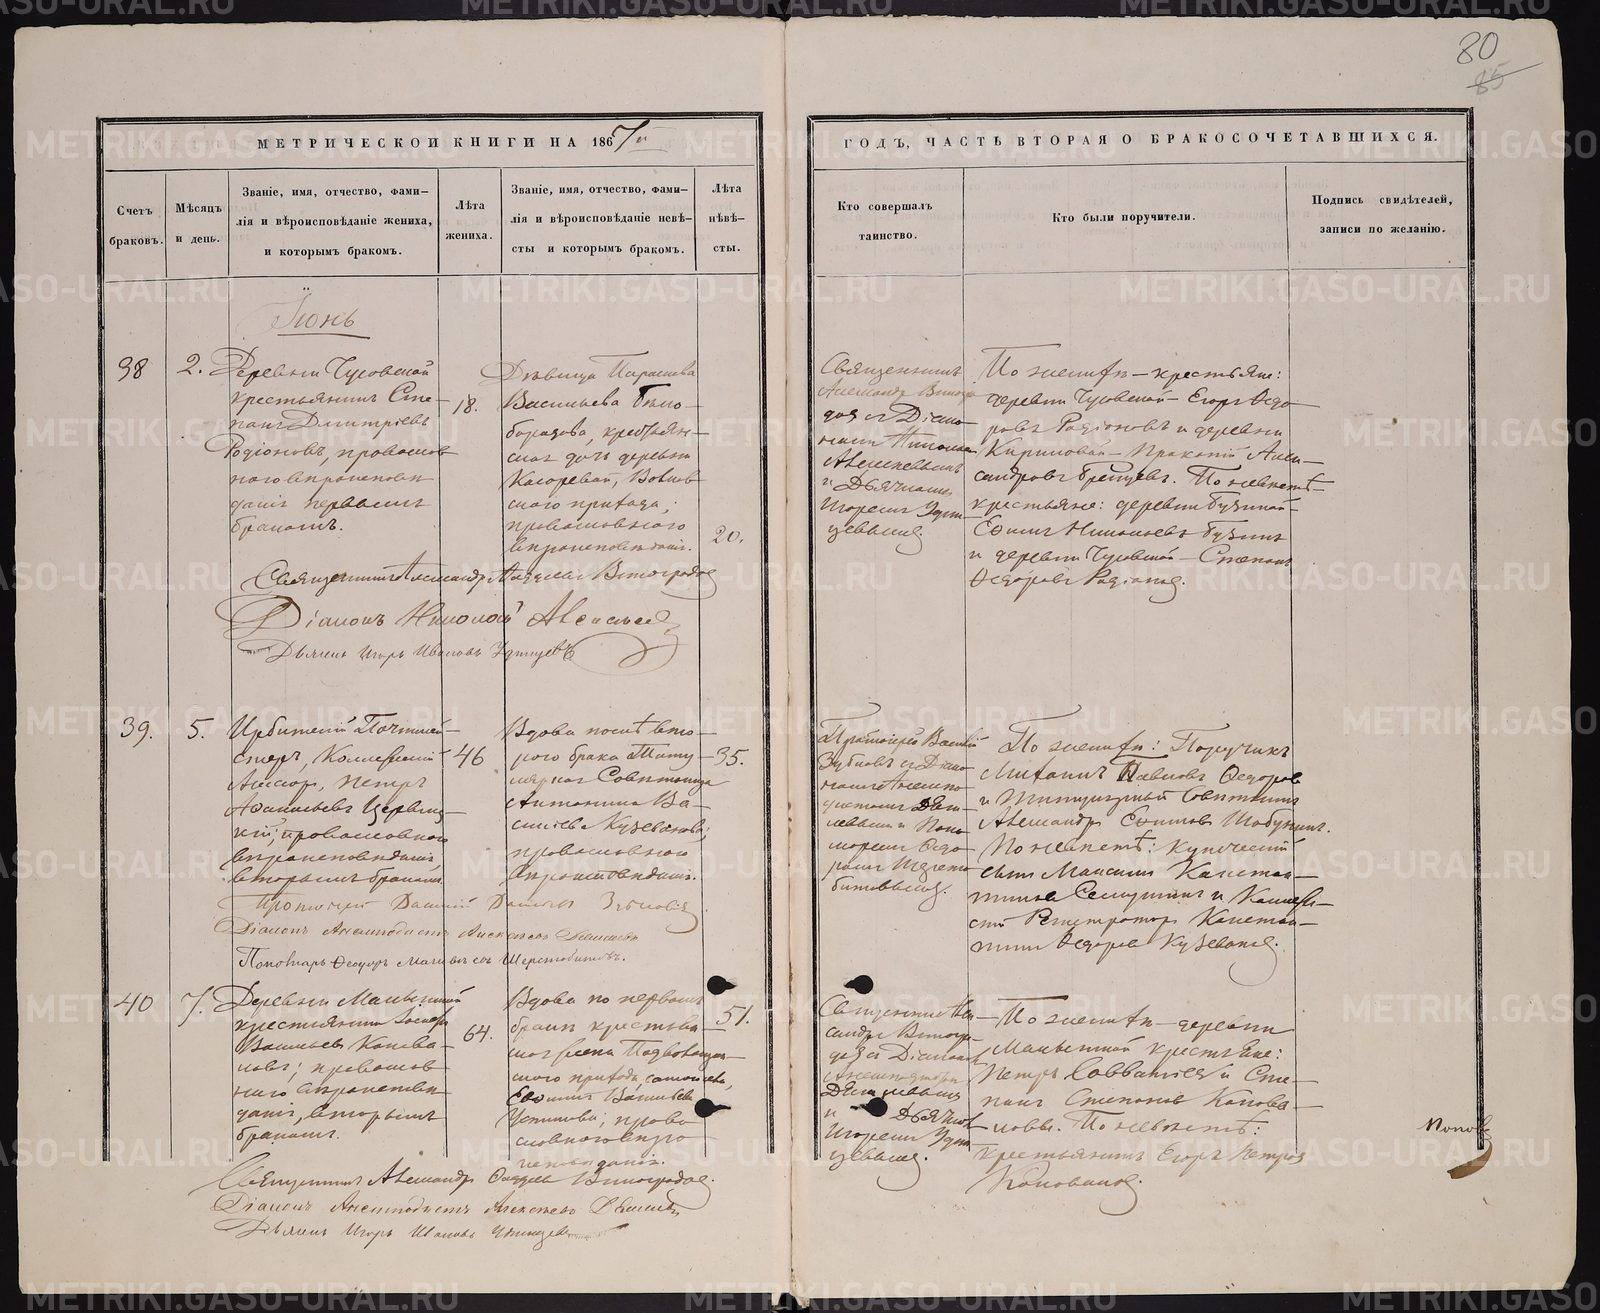 80
85
МЕТРИЧЕСКОЙ КНИГИ НА 1867й
ГОДЪ, ЧАСТЬ ВТОРАЯ О БРАКОСОЧЕТАВШИХСЯ.
Счетъ
браковъ.
Мѣсяцъ
и день.
Званіе, имя, отчество, фами-
лія и вѣроисповѣданіе жениха,
и которымъ бракомъ.
Лѣта
жениха.
Званіе, имя, отчество, фами-
лія и вѣроисповѣданіе невѣ-
сты и которымъ бракомъ.
Лѣта
нѣвѣ-
сты.
Кто совершалъ
таинство.
Кто были поручители.
Подпись свидѣтелей,
записи по желанію.
Іюнь
38
2.
Деревни Чусовской
крестьянинъ Сте-
панъ Дмитріевъ
Родіоновъ, православ
наго вѣроисповѣ
данія первымъ
бракомъ.
18.
Дѣвица Парасковья
Васильева Бѣло-
бородова, крестьян-
ская дочь деревни
прихода,
православнаго
вѣроисповѣданія.
20.
Священникъ
Александръ Виногра
довъ съ Діако-
номъ Николаемъ
Алексѣевымъ
и Дьячкомъ
Игоремъ Удин
цевымъ.
По женихѣ – крестьяне:
деревни Чусовской – Егоръ Ѳедо
ровъ Родіоновъ и деревни
Алек-
сандровъ По невѣстѣ–
крестьяне: деревни Бузиной–
Ефимъ Николаевъ Бузинъ
и деревни Чусовской – Степанъ
Ѳедоровъ Родіоновъ.
Священникъ Александръ Андреевъ Виноградовъ
Діаконъ Николай Алексѣевъ
Дьячекъ Игорь Ивановъ Удинцевъ
39.
5.
Ирбитскій Почтмей-
стеръ, Коллежскій
Ассесоръ, Петръ
Аѳанасьевъ Церевиц-
кій; православнаго
вѣроисповѣданія,
вторымъ бракомъ
46
Вдова послѣ вто-
рого брака Титу-
лярная Совѣтница
Антонина Ва-
сильева Кузеванова;
православнаго
вѣроисповѣданія.
35.
Протоіерей Василій
Зубковъ съ Діако
номъ Анемпо
дистомъ
и Поно
маремъ Ѳедо
ромъ Шерсто
битовымъ.
По женихѣ: Поручикъ
Михаилъ Павловъ Ѳедоровъ
и Титулярный Совѣтникъ
Александръ
По невѣстѣ: купеческій
сынъ Максимъ Констан-
тиновъ и Коллеж-
скій Регистраторъ Констан-
тинъ Ѳедоровъ Кузевановъ.
Протоіерей Василій Зубковъ
Діаконъ Анемподистъ Алексѣевъ
Пономарь Ѳеодоръ Шерстобитовъ.
40
7.
Деревни Мальгиной
крестьянинъ
Васильевъ Конова-
ловъ; православ
наго вѣроисповѣ
данія, вторымъ
бракомъ.
64.
Вдова по первомъ
бракѣ крестьян
ская жена
прихода,
Васильева
Устинова; право
славнаго вѣро
исповѣданія.
51.
Священникъ Алек
сандръ Виногра-
довъ съ Діакономъ
Анемподистомъ
и Дьячкомъ
Игоремъ Удин
цевымъ.
По женихѣ – деревни
Мальгиной крестьяне:
Петръ Савватіевъ и Сте-
панъ Степановъ Конова-
ловы. По невѣстѣ:
крестьянинъ Егоръ Петровъ
Коноваловъ.
Попов
Священникъ Александръ Андреевъ Виноградовъ.
Діаконъ Анемподистъ Алексѣевъ
Дьячекъ Игорь Ивановъ Удинцевъ
METRIKI.GASO-URAL.RU